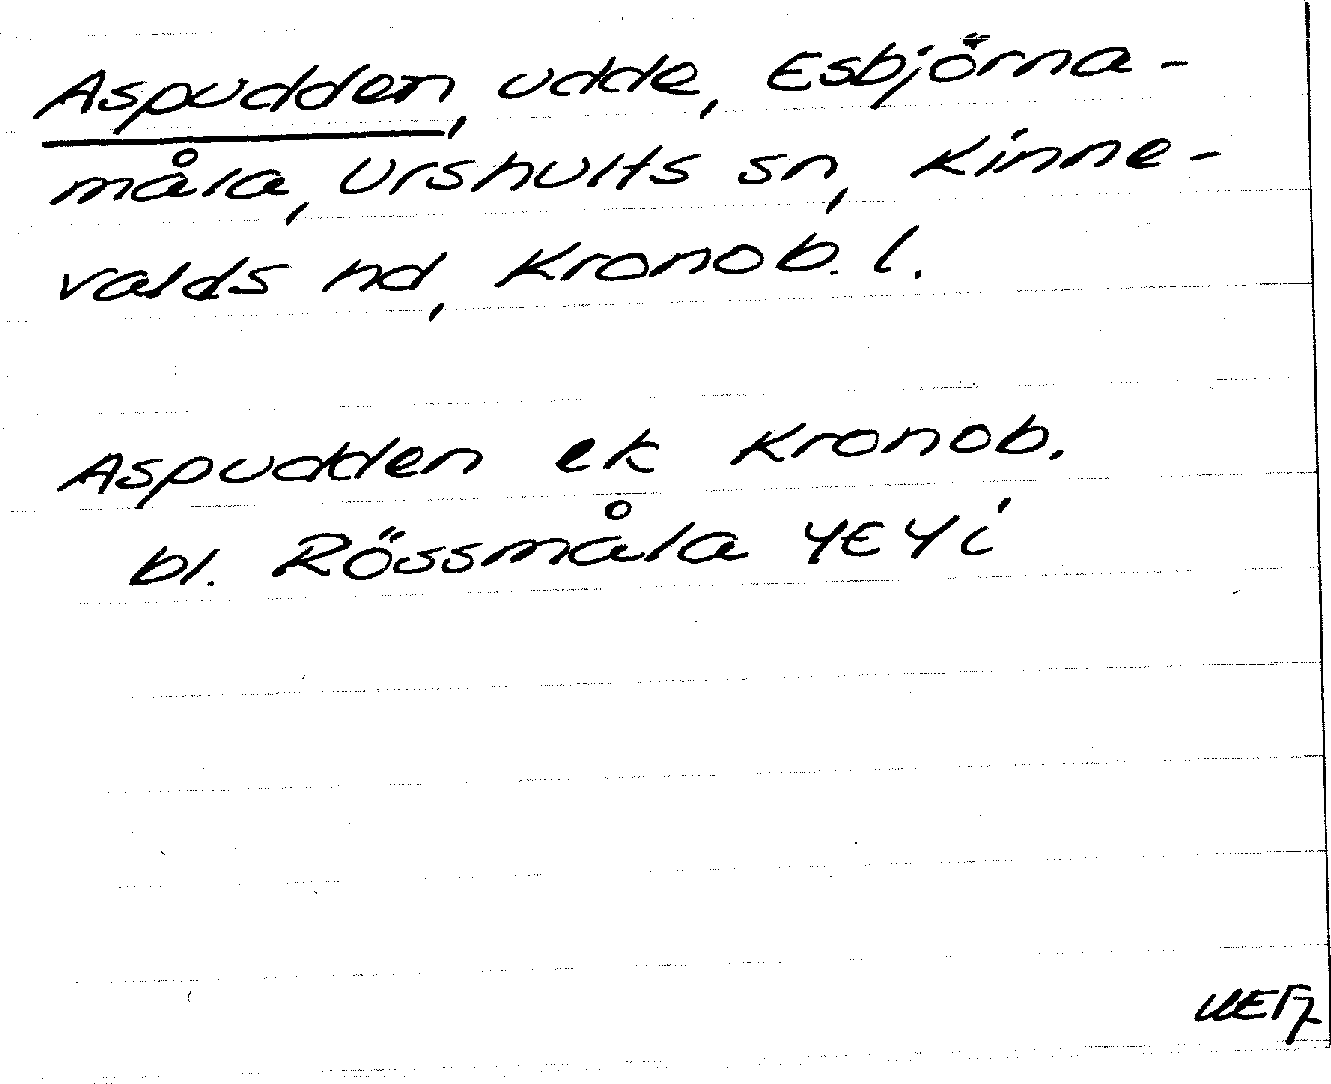 Aspudden, udde, Esbjörna-
måla, Urshults sn, Kinne-
valds hd, Kronob. l.
Aspudden ek Kronob.
bl. Rössmåla 4E4i